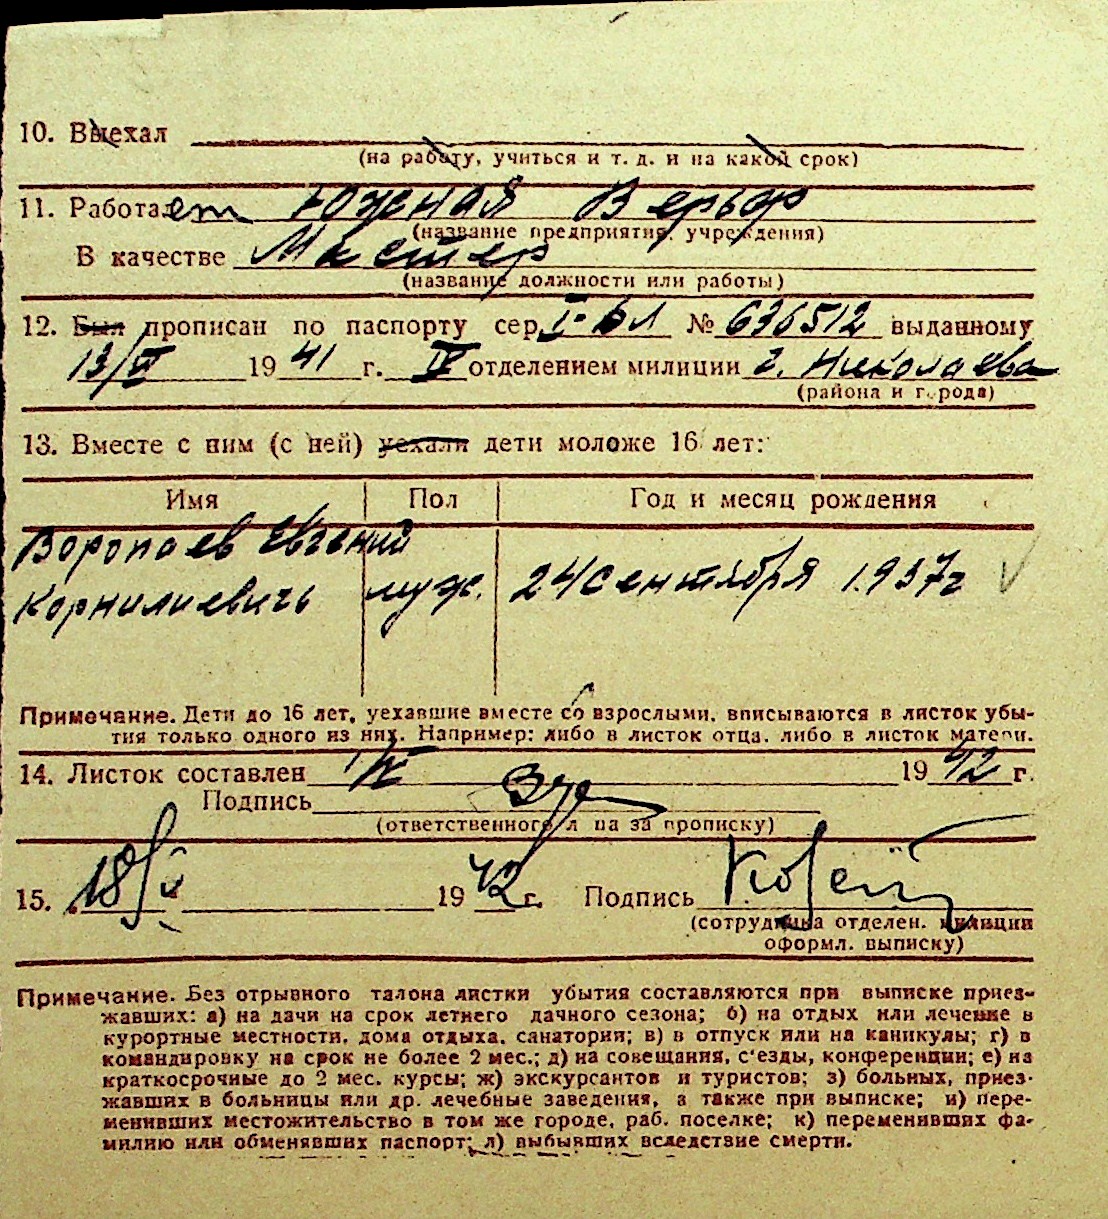 10. Выехал
(на работу, учиться и т. д. и на какой срок)
11. Работает Южная Верьф
(название предприятия, учреждения)
В качестве Мастер
(название должности или работы)
12. Был прописан по паспорту сер. № 636512 выданному
13/ 19 41 г. IV отделением милиции г. Николаева
(района и города)
13. Вместе с ним (с ней) уехали дети моложе 16 лет:
Имя Пол Год и месяц рождения
Воропаев Евгений
Корнилиевичь муж. 24 сентября 1937 г
Примечание. Дети до 16 лет, уехавшие вместе со взрослыми, вписываются в листок убы-
тия только одного из них. Например: либо в листок отца, либо в листок матери.
14. Листок составлен 19 42 г.
Подпись
(ответственного л ца за прописку)
15. 18/ 19 42 г. Подпись
(сотрудника отделен. милиции
оформл. выписку)
Примечание. Без отрывного талона листки убытия составляются при выписке приез-
жавших: а) на дачи на срок летнего дачного сезона; б) на отдых или лечение в
курортные местности, дома отдыха, санатории; в) в отпуск или на каникулы; г) в
командировку на срок не более 2 мес.; д) на совещания, с'езды, конференции; е) на
краткосрочные до 2 мес. курсы; ж) экскурсантов и туристов; з) больных, приез-
жавших в больницы или др. лечебные заведения, а также при выписке; и) пере-
менивших местожительство в том же городе, раб. поселке; к) переменивших фа-
милию или обменявших паспорт; л) выбывших вследствие смерти.